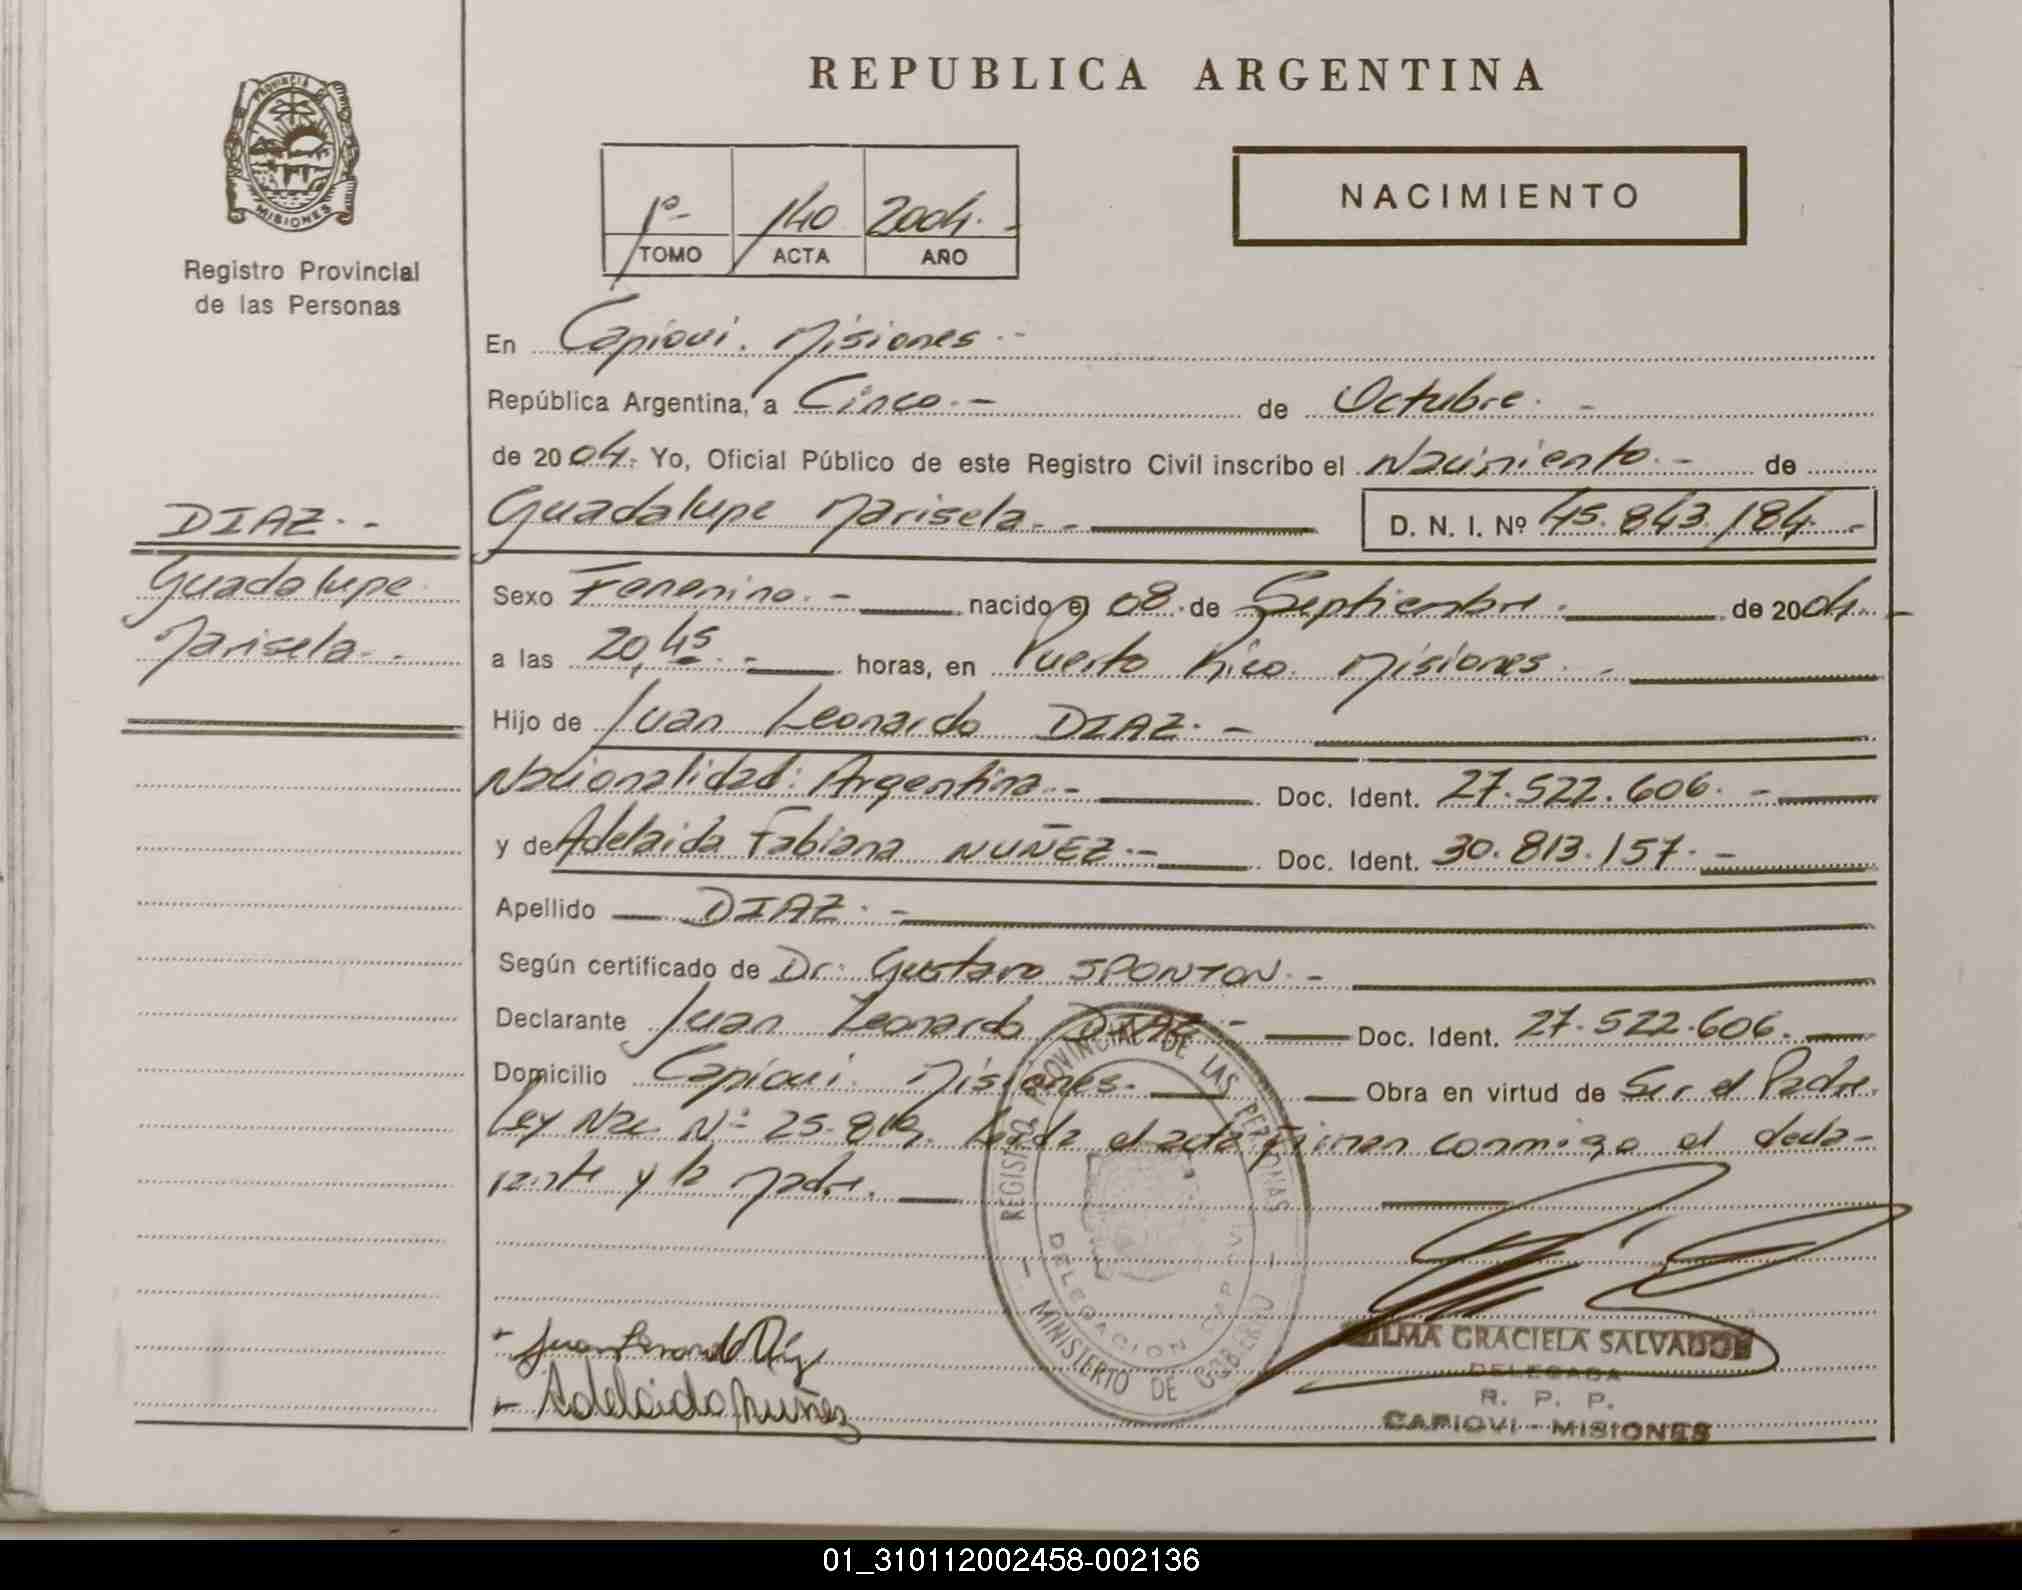 REPUBLICA ARGENTINA
PROVINCIA DE
MISIONES
Registro Provincial
de las Personas
1º- 140 2004.-
TOMO ACTA AÑO
NACIMIENTO
En Capioví. Misiones.-
República Argentina, a Cinco.- de Octubre.-
de 2004.- Yo, Oficial Público de este Registro Civil inscribo el Nacimiento.- de
Guadalupe Marisela.- D. N. I. Nº 45.843.184.-
DIAZ.-
Guadalupe
Marisela.-
Sexo Femenino.- nacido el 08 de Septiembre. de 2004.-
a las 20,45.- horas, en Puerto Rico. Misiones.-
Hijo de Juan Leonardo DIAZ.-
Nacionalidad: Argentina.- Doc. Ident. 27.522.606.-
y de Adelaida Fabiana NUÑEZ.- Doc. Ident. 30.813.157.-
Apellido DIAZ.-
Según certificado de Dr. Gustavo SPONTON.-
Declarante Juan Leonardo DIAZ.- Doc. Ident. 27.522.606.
Domicilio Capioví. Misiones. Obra en virtud de Ser el Padre.
Ley Nac Nº 25.819. Leída el acta firman conmigo el decla-
rante y la madre.
REGISTRO PROVINCIAL DE LAS PERSONAS
DELEGACION
MINISTERIO DE GOBIERNO
Adelaida Nuñez
GRACIELA SALVADOR
DELEGADA
R. P. P.
CAPIOVI - MISIONES
01_310112002458-002136